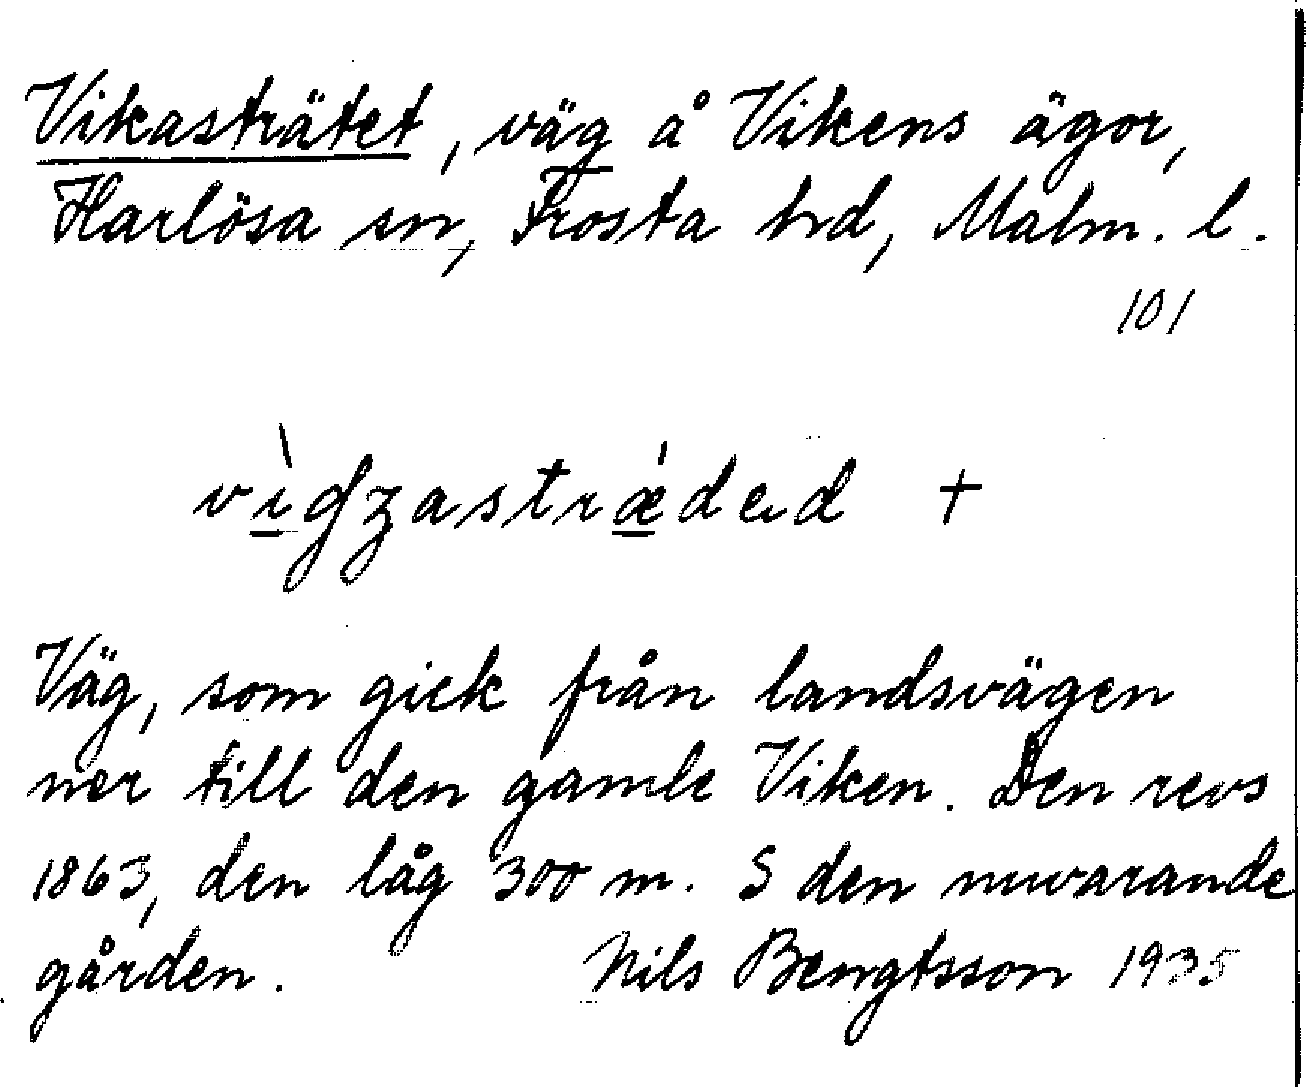 Vikasträtet, väg å Vikens ägor,
Harlösa sn, Frosta hd, Malm. l.
101
Väg, som gick från landsvägen
ner till den gamle Viken. Den revs
1863, den låg 300 m. S den nuvarande
gården. Nils Bengtsson 1935